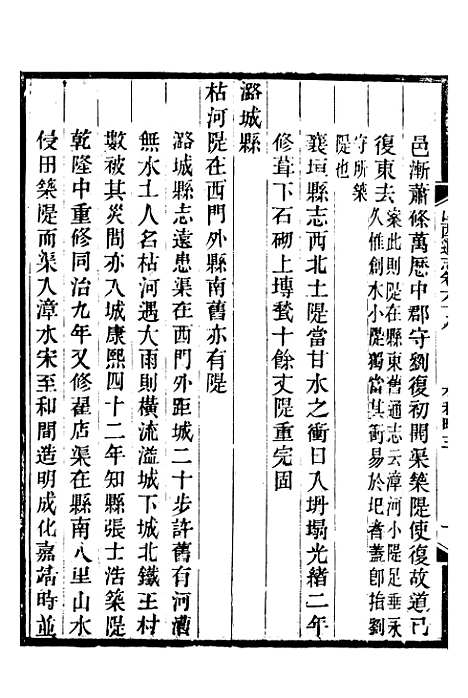 邑漸蕭條萬歷中郡守劉復初開渠築隄使復故道已
復東去案此則隄在縣東舊通志云漳河小隄足垂永
久倠創水小隄獨當其衝易於圮者蓋卽指劉
守所築
隄也
襄垣縣志西北土隄當甘水之衝日入坍塌光緒二年
修葺下石砌上塼甃十餘丈隄重完固
潞城縣
枯河隄在西門外縣南舊亦有隄
潞城縣志遠患渠在西門外距城二十步許舊有河漕
無水土人名枯河遇大雨則橫流溢城下城北鐵王村
數被其災間亦入城康熙四十二年知縣張士浩築隄
乾隆中重修同治九年又修翟店渠在縣南八里山水
侵田築隄而渠入漳水宋至和間造明成化嘉靖時並